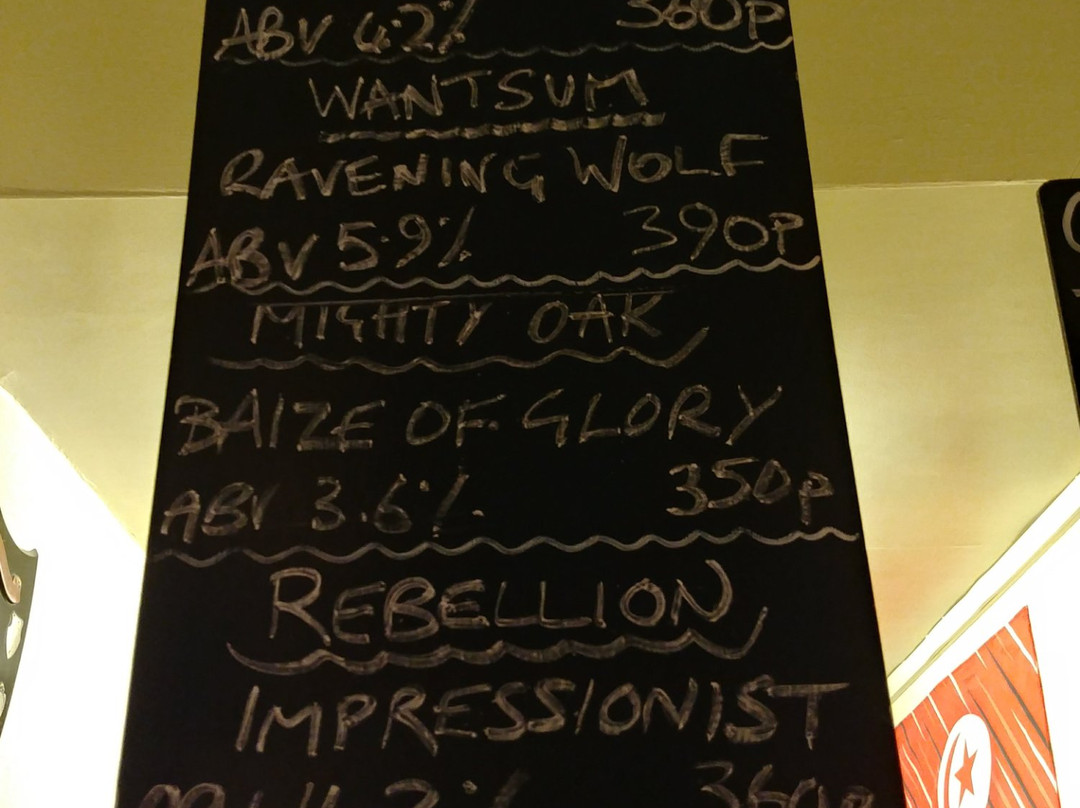 ABV 4.2% 360p
WANTSUM
RAVENING WOLF
ABV 5.9% 390P
MIGHTY OAK
BAIZE OF GLORY
ABV 3.6% 350p
REBELLION
IMPRESSIONIST